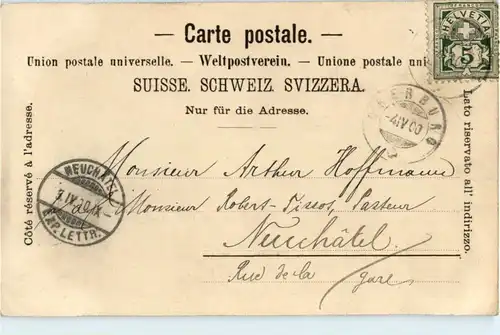 — Carte postale. —
Union postale universelle. — Weltpostverein. — Unione postale
SUISSE. SCHWEIZ. SVIZZERA.
Nur für die Adresse.
HELVETIA
5
Côté réservé à l'adresse.
Lato riservato all' indirizzo.
-4.IV.00
NEUCHÂTEL
EXP. LETTR.
Monsieur Arthur Hoffmann
Monsieur Robert-Tissot, Pasteur
Neuchâtel
Rue de la gare